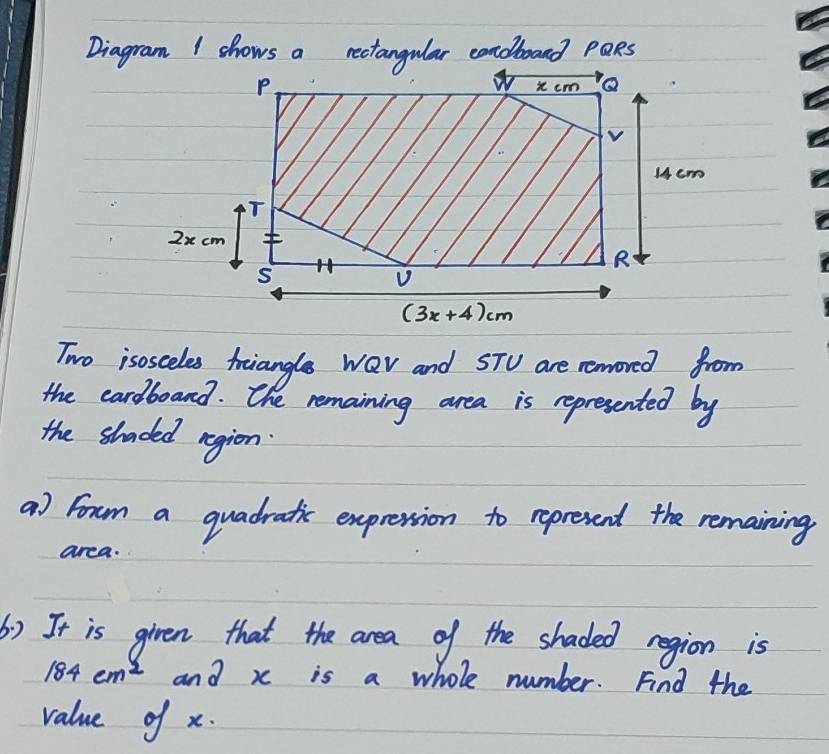 Diagram 1 shows a rectangular cardboard PQRS
P W x cm Q
V
14 cm
T
2x cm
S U R
(3x+4)cm
Two isosceles triangles WQV and STU are removed from
the cardboard. The remaining area is represented by
the shaded region.
a) Form a quadratic expression to represent the remaining
area.
b.) It is given that the area of the shaded region is
184 cm² and x is a whole number. Find the
value of x.